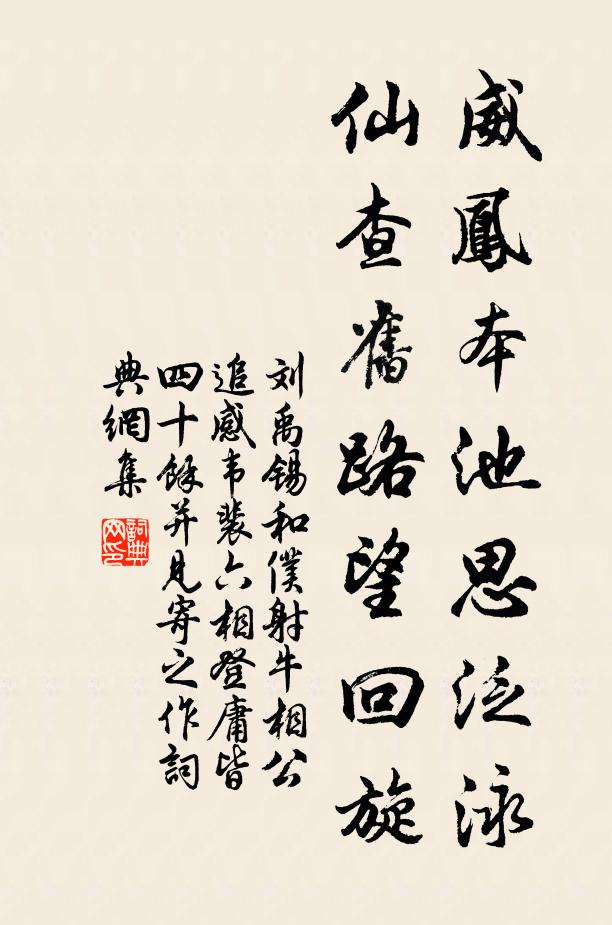 威鳳本池思泛泳
仙查舊路望回旋
刘禹锡和僕射牛相公
追感韦裴六相登庸皆
四十餘并见寄之作詞
典網集
詞典网印